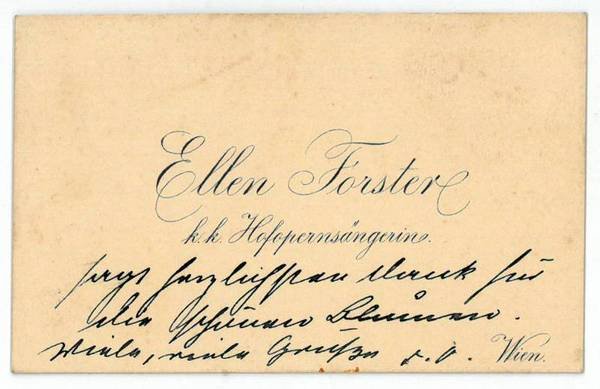 Ellen Forster
k. k. Hofopernsängerin.
sagt herzlichsten Dank für
die schönen Blumen.
Viele, viele Grüße d. O. Wien.